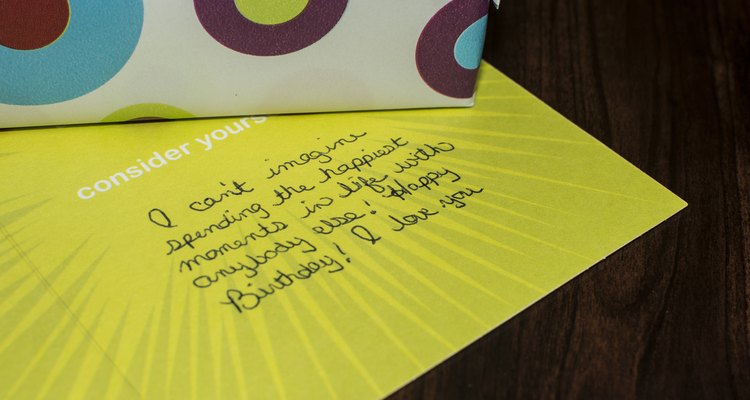 consider yours
I can't imagine
spending the happiest
moments in life with
anybody else! Happy
Birthday! I love you